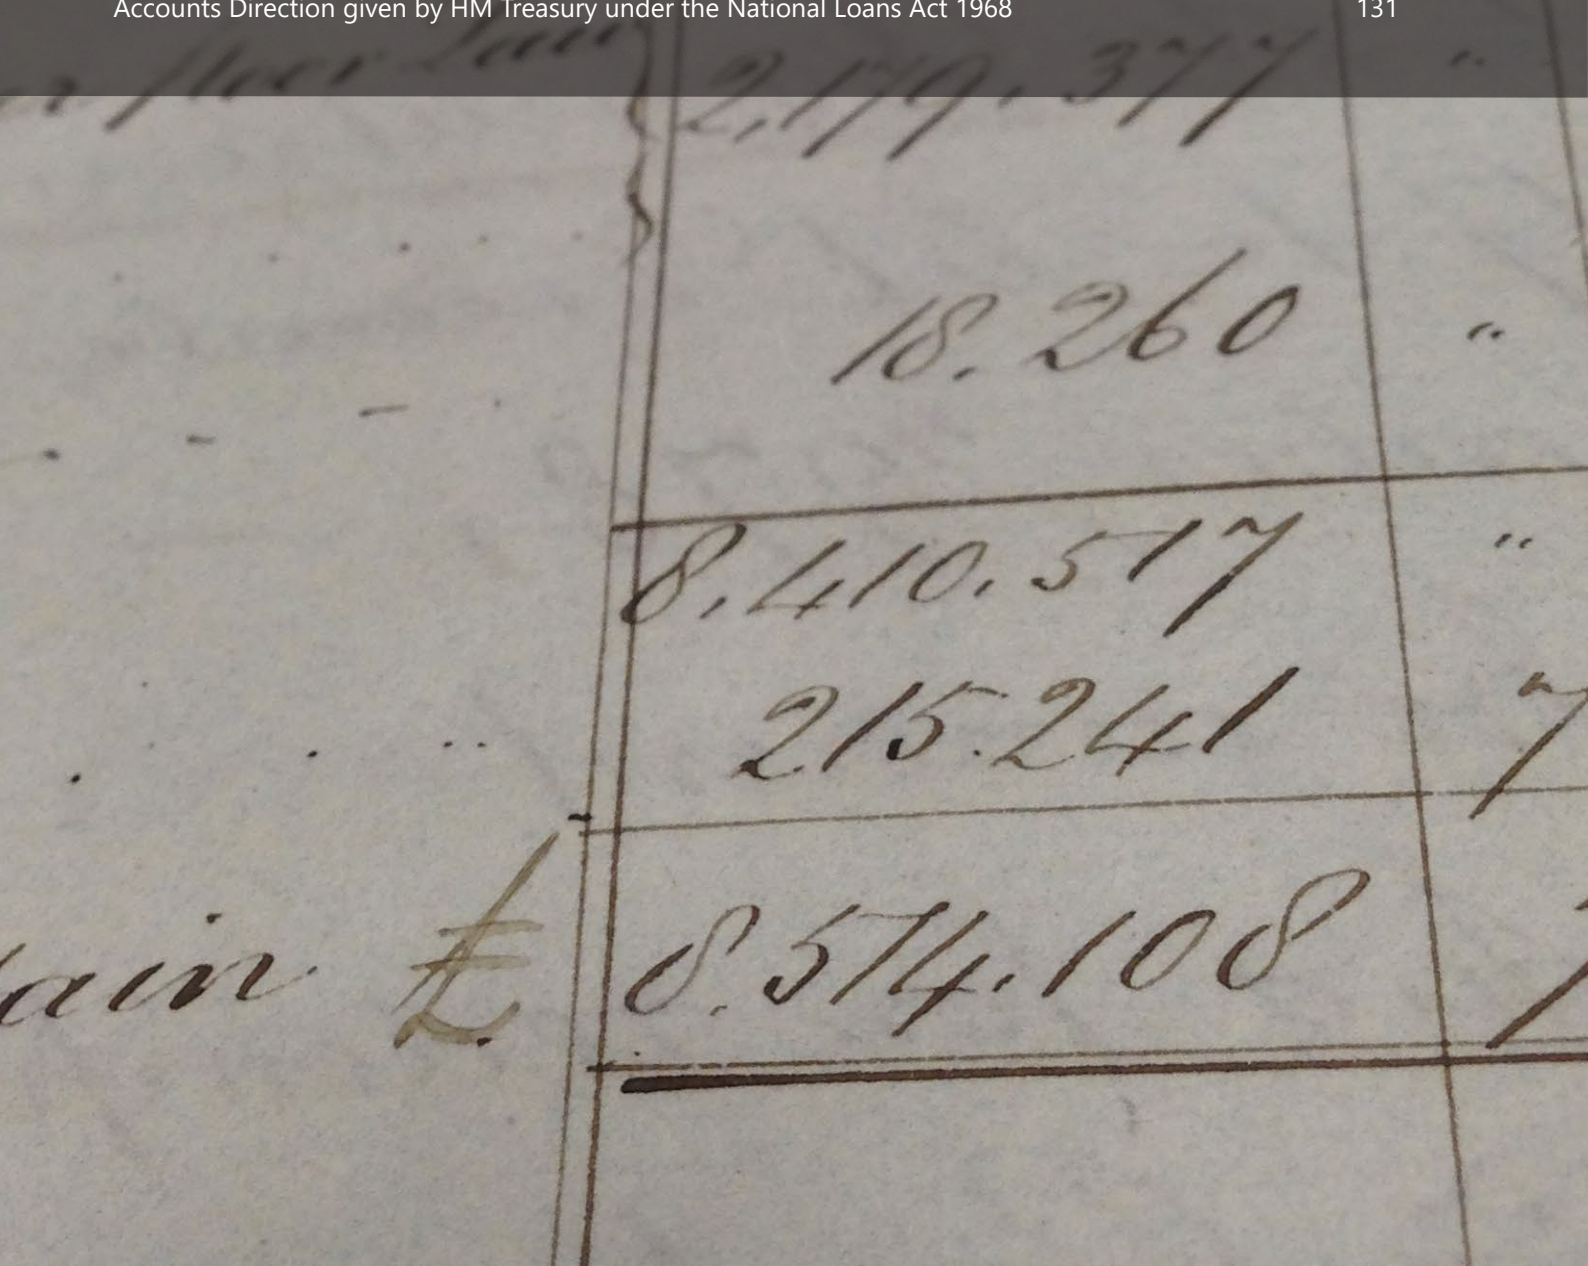 Accounts Direction given by HM Treasury under the National Loans Act 1968 131
2,179,377 "
18.260 "
8,410,517 "
215.241 7
ain £ 8.574.108 7